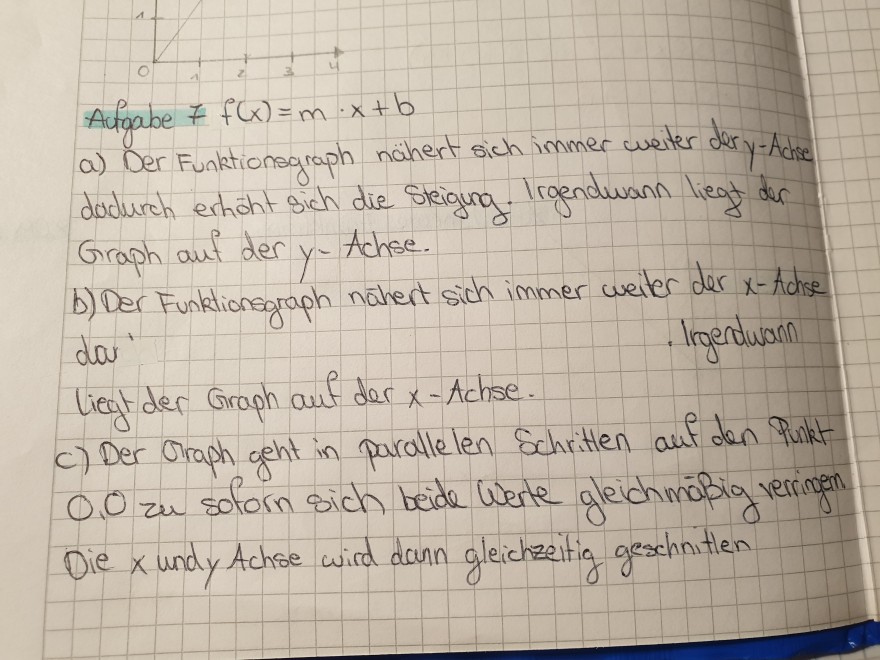 1
0 1 2 3 4
Aufgabe 7 f(x) = m · x + b
a) Der Funktionsgraph nähert sich immer weiter der y-Achse
dadurch erhöht sich die Steigung. Irgendwann liegt der
Graph auf der y-Achse.
b) Der Funktionsgraph nähert sich immer weiter der x-Achse
. Irgendwann
liegt der Graph auf der x-Achse.
c) Der Graph geht in parallelen Schritten auf den Punkt
0,0 zu sofern sich beide Werte gleichmäßig verringern
Die x und y Achse wird dann gleichzeitig geschnitten